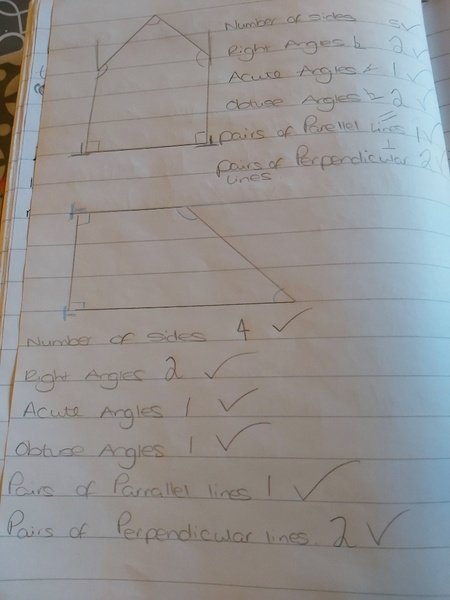 Number of sides 5
Right Angles 2
Acute Angles 1
Obtuse Angles 2
pairs of Parellel lines 1
pairs of Perpendicular 2
lines
Number of sides 4
Right Angles 2
Acute Angles 1
Obtuse Angles 1
Pairs of Parrallel lines 1
Pairs of Perpendicular lines. 2